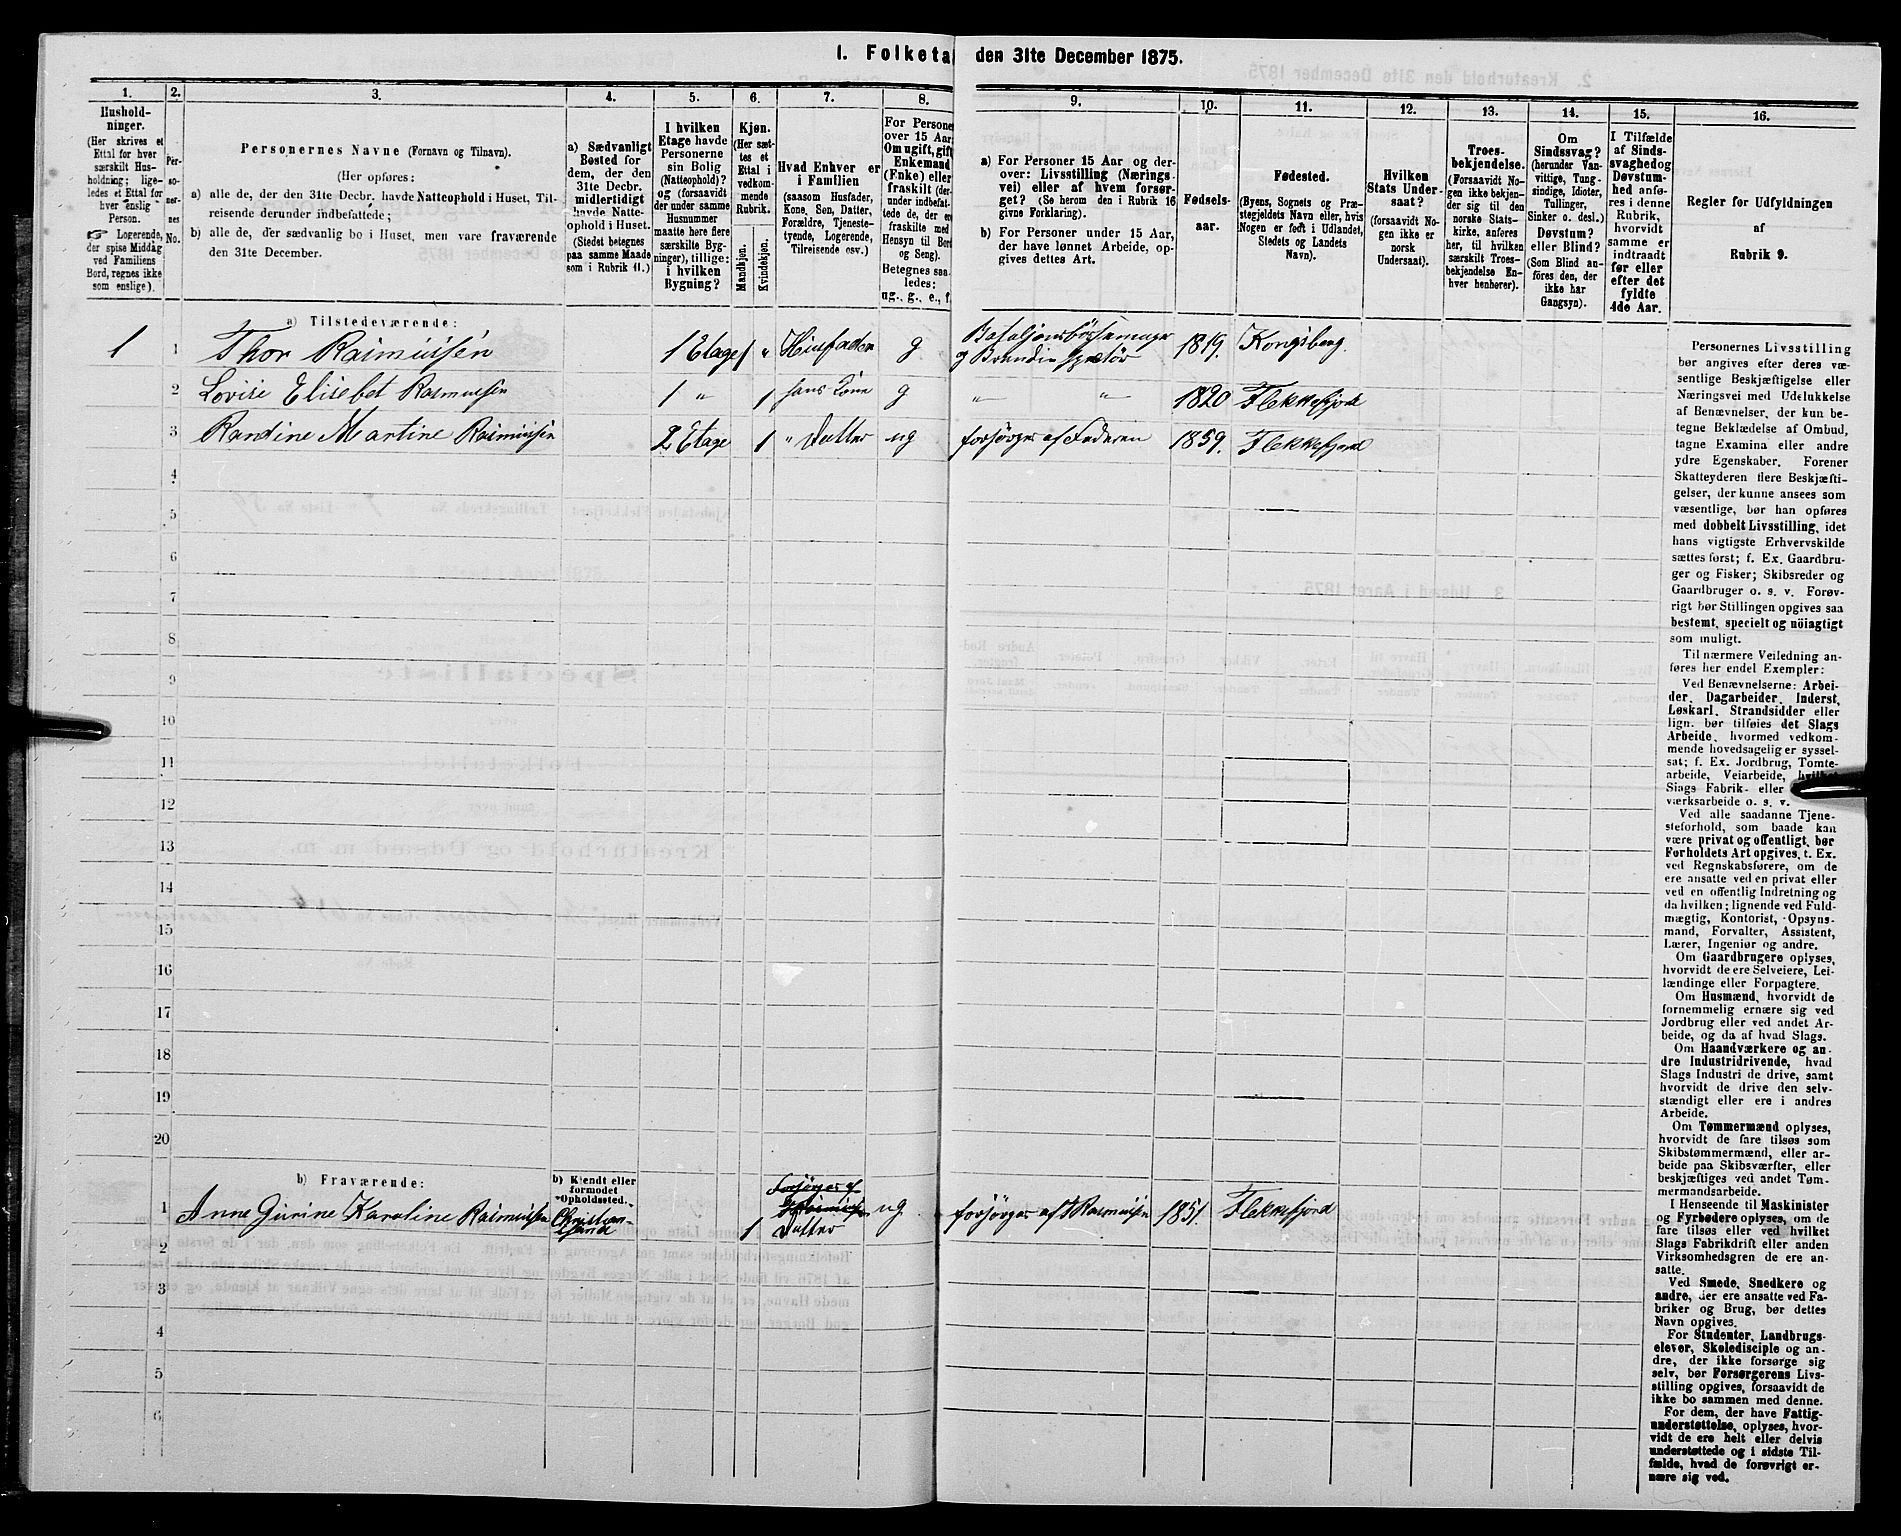 I. Folketa den 31te December 1875.
1.
Hushold-
ninger.
(Her skrives et
Ettal for hver
særskilt Hus-
holdning; lige-
ledes et Ettal for
hver enslig
Person.
Logerende,
der spise Middag
ved Familiens
Bord, regnes ikke
som enslige).
2.
Per-
so-
ner-
nes
No.
3.
Personernes Navne (Fornavn og Tilnavn).
(Her opføres:
a) alle de, der den 31te Decbr. havde Natteophold i Huset, Til-
reisende derunder indbefattede;
b) alle de, der sædvanlig bo i Huset, men vare fraværende
den 31te December.
4.
a) Sædvanligt
Bosted for
dem, der den
31te Decbr.
midlertidigt
havde Natte-
ophold i Huset.
(Stedet betegnes
paa samme Maade
som i Rubrik 11.)
5.
I hvilken
Etage havde
Personerne
sin Bolig
(Natteophold)?
og (forsaavidt
der under samme
Husnummer
maatte høre flere
særskilte Byg-
ninger), tillige:
i hvilken
Bygning?
6.
Kjøn.
(Her sæt-
tes et
Ettal i
vedkom-
mende
Rubrik.
Mandkjøn.
Kvindekjøn.
7.
Hvad Enhver er
i Familien
(saasom Husfader,
Kone, Søn, Datter,
Forældre, Tjeneste-
tyende, Logerende,
Tilreisende osv.)
8.
For Persone
over 15 Aar
Om ugift, gift
Enkemand
(Enke) eller
fraskilt (der-
under indbefat-
tede de, der ere
fraskilte med
Hensyn til Bord
og Seng).
Betegnes saa-
ledes:
ug., g., e., f.
9.
a) For Personer 15 Aar og der-
over: Livsstilling (Nærings-
vei) eller af hvem forsør-
get? (Se herom den i Rubrik 16
givne Forklaring).
b) For Personer under 15 Aar,
der have lønnet Arbeide, op-
gives dettes Art.
10.
Fødsels-
aar.
11.
Fødested.
(Byens, Sognets og Præ-
stegjeldets Navn eller, hvis
Nogen er født i Udlandet,
Stedets og Landets
Navn).
12.
Hvilken
Stats Under-
saat?
(forsaavidt No-
gen ikke er
norsk
Undersaat).
13.
Troes-
bekjendelse.
(Forsaavidt No-
gen ikke bekjen-
der sig til den
norske Stats-
kirke, anføres
her, til hvilken
særskilt Troes-
bekjendelse En-
hver henhører).
14.
Om
Sindssvag?
(herunder Van-
vittige, Tung-
sindige, Idioter,
Tullinger,
Sinker o. desl.)
Døvstum?
eller Blind?
(Som Blind an-
føres den, der
ikke har
Gangsyn).
15.
I Tilfælde
af Sinds-
svaghed og
Døvstum-
hed anfø-
res i denne
Rubrik,
hvorvidt
samme er
indtraadt
før eller
efter det
fyldte
4de Aar.
16.
Regler for Udfyldningen
af
Rubrik 9.
a) Tilstedeværende:
1 1 Thor Rasmussen 1 Etage 1 " Husfader g Bataljonsbøssemager 1819. Kongsberg.
g Brandinspetør
2 Lovise Elisebet Rasmussen 1 " 1 hans Kone g " " 1820 Flekkefjord
3 Randine Martine Rasmussen 2 Etage 1 " Datter ug forsørges af Faderen 1859. Flekkefjord
4
5
6
7
8
9
10
11
12
13
14
15
16
17
18
19
20
b) Fraværende:
b) Kjendt eller
formodet
Opholdssted.
Forsørges af
1 Anne Gurine Karoline Rasmussen Christian- 1 Datter ug forsørges af T Rasmussen 1851. Flekkefjord
sand
2
3
4
5
6
Personernes Livsstilling
bør angives efter deres væ-
sentlige Beskjæftigelse eller
Næringsvei med Udelukkelse
af Benævnelser, der kun be-
tegne Beklædelse af Ombud,
tagne Examina eller andre
ydre Egenskaber. Forener
Skatteyderen flere Beskjæfti-
gelser, der kunne ansees som
væsentlige, bør han opføres
med dobbelt Livsstilling, idet
hans vigtigste Erhvervskilde
sættes først; f. Ex. Gaardbru-
ger og Fisker; Skibsreder og
Gaardbruger o. s. v. Forøv-
rigt bør Stillingen opgives saa
bestemt, specielt og nöiagtigt
som muligt.
Til nærmere Veiledning an-
føres her endel Exempler:
Ved Benævnelserne: Arbei-
der, Dagarbeider, Inderst,
Løskarl, Strandsidder eller
lign. bør tilføies det Slags
Arbeide, hvormed vedkom-
mende hovedsagelig er syssel-
sat; f. Ex. Jordbrug, Tomte-
arbeide, Veiarbeide, hvilket
Slags Fabrik- eller
værksarbeide o. s. v.
Ved alle saadanne Tjene-
steforhold, som baade kan
være privat og offentligt, bør
Forholdets Art opgives, t. Ex.
ved Regnskabsførere, om de
ere ansatte ved en privat eller
ved en offentlig Indretning og
da hvilken; lignende ved Fuld-
mægtig, Kontorist, Opsyns-
mand, Forvalter, Assistent,
Lærer, Ingeniør og andre.
Om Gaardbrugere oplyses,
hvorvidt de ere Selveiere, Lei-
lændinge eller Forpagtere.
Om Husmænd, hvorvidt de
fornemmelig ernære sig ved
Jordbrug eller ved andet Ar-
beide, og da af hvad Slags.
Om Haandværkere og an-
dre Industridrivende, hvad
Slags Industri de drive, samt
hvorvidt de drive den selv-
stændigt eller ere i andres
Arbeide.
Om Tømmermænd oplyses,
hvorvidt de fare tilsøs som
Skibstømmermænd, eller ar-
beide paa Skibsværfter, eller
beskjæftiges ved andet Tøm-
mermandsarbeide.
I Henseende til Maskinister
og Fyrbødere oplyses, om de
fare tilsøs eller ved hvilket
Slags Fabrikdrift eller anden
Virksomhedsgren de ere an-
satte.
Ved Smede, Snedkere og
andre, der ere ansatte ved Fa-
briker og Brug, bør dettes
Navn opgives.
For Studenter, Landbrugs-
elever, Skoledisciple og an-
dre, der ikke forsørge sig
selv, bør Forsørgerens Livs-
stilling opgives, forsaavidt de
ikke bo sammen med denne.
For dem, der have Fattig-
understøttelse, oplyses, hvor-
vidt de ere helt eller delvis
understøttede og i sidste Til-
fælde, hvad de forøvrigt er-
nære sig ved.